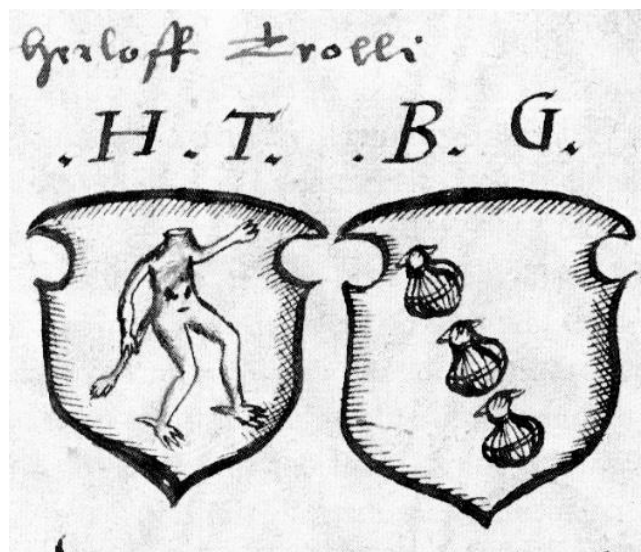 Herloff Trolli
.H.T. .B.G.